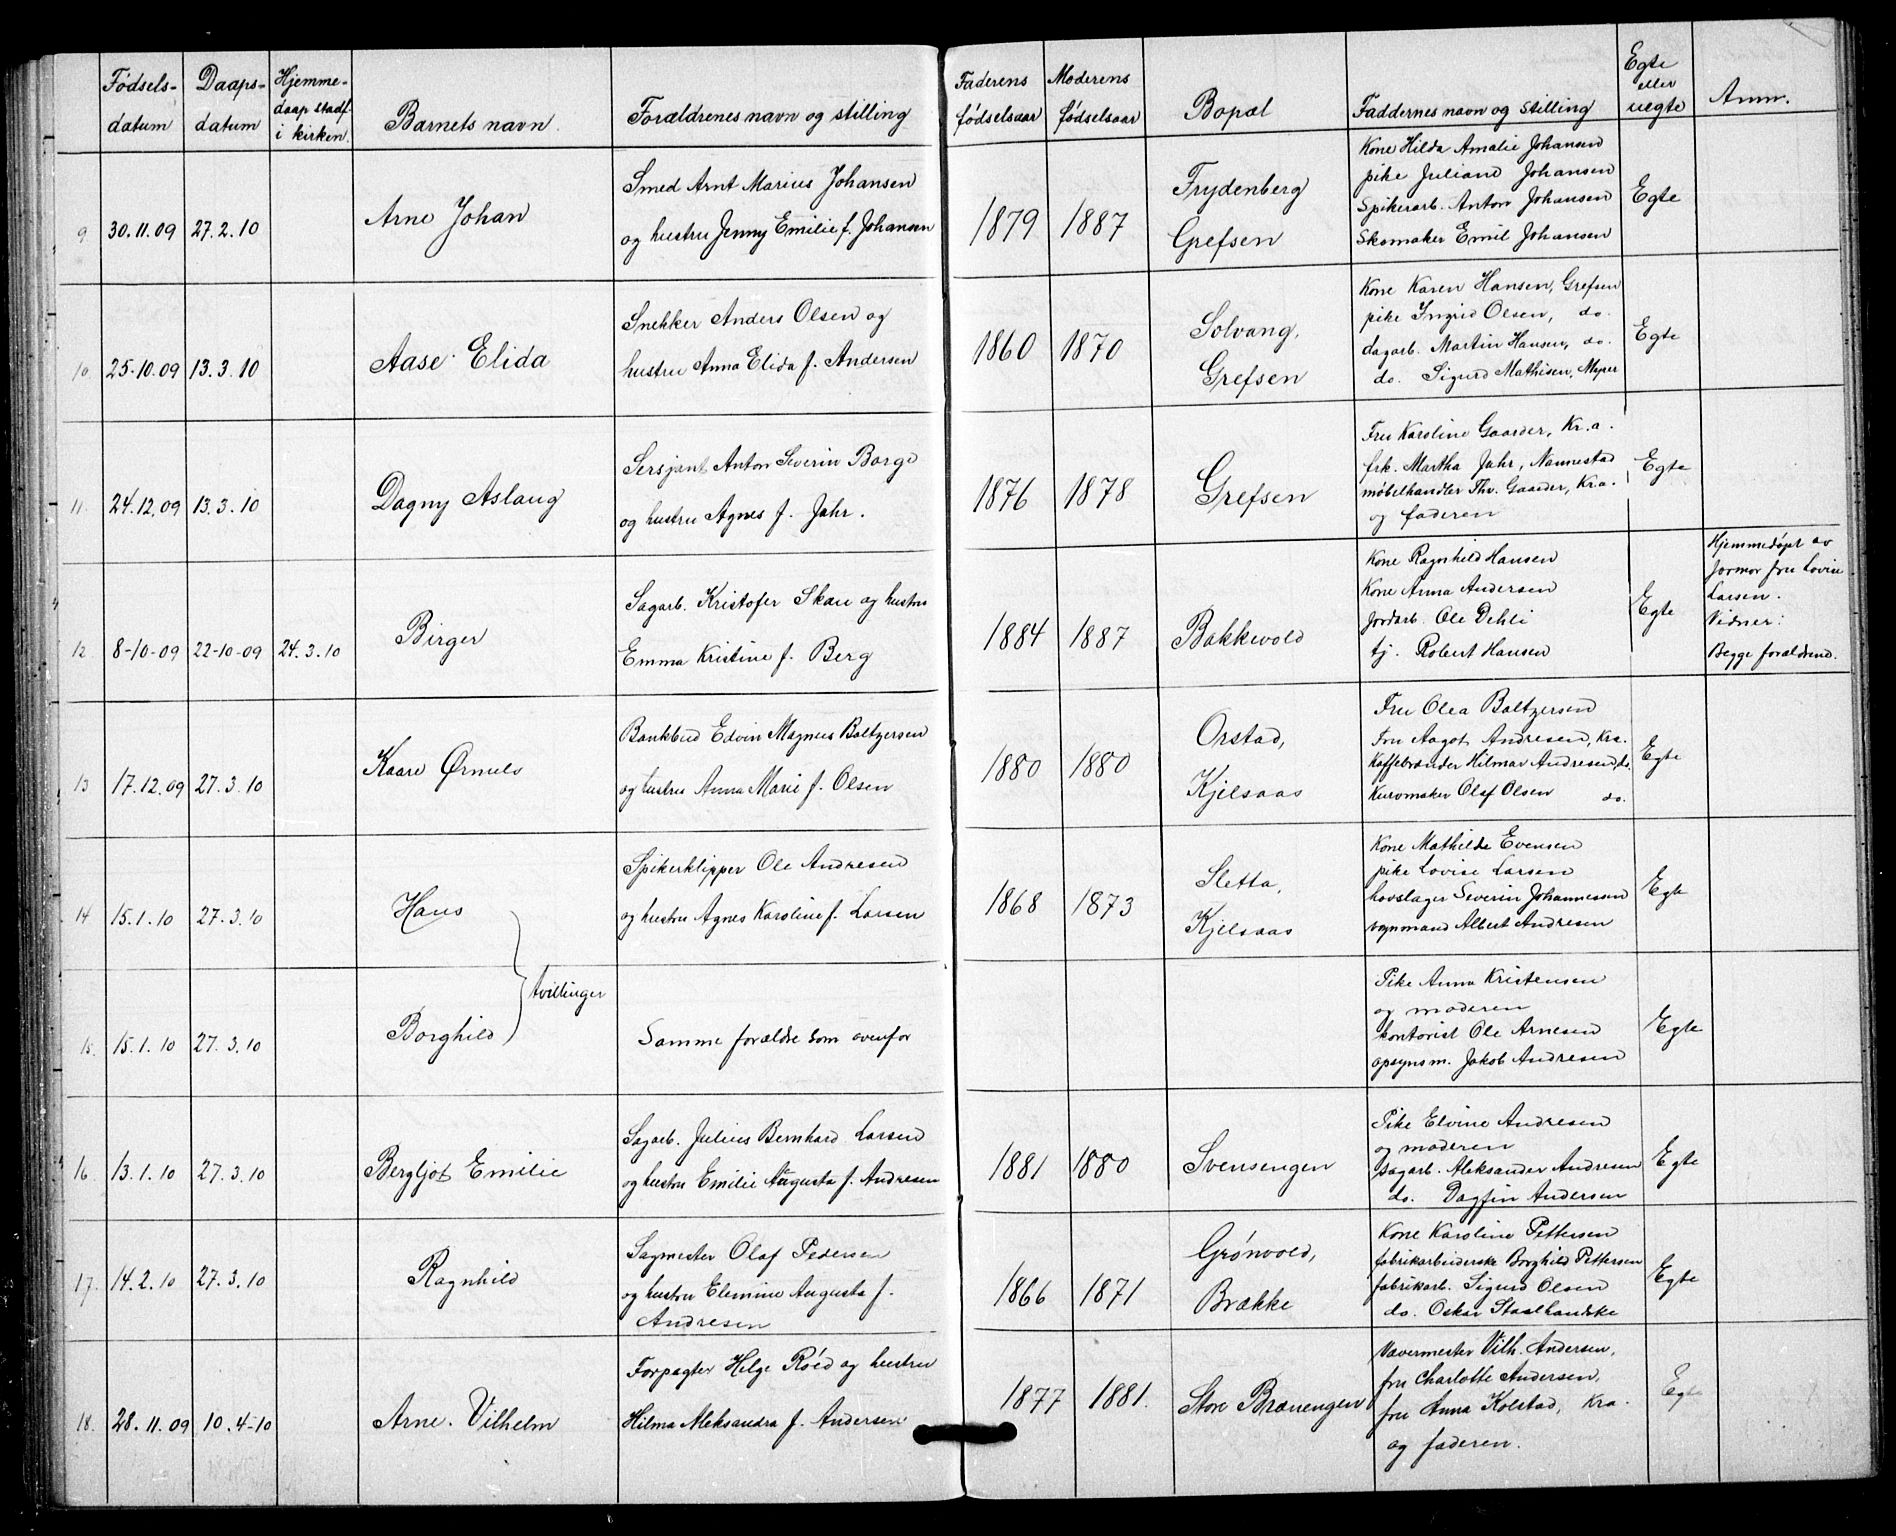 Fødsels-datum | Daaps-datum | Hjemme-daap stadf. i kirken. | Barnets navn. | Forældrenes navn og stilling | Faderens fødselsaar | Moderens fødselsaar | Bopæl | Faddernes navn og stilling | Egte eller uegte | Anm.
9 | 30.11.09 | 27.2.10 | Arne Johan
Smed Arnt Marius Johansen
og hustru Jenny Emilie f. Johansen
1879 | 1887
Frydenberg
Grefsen
Kone Hilda Amalie Johansen
pike Juliane Johansen
Spikerarb. Anton Johansen
Skomaker Emil Johansen
Egte
10. | 25.10.09 | 13.3.10 | Aase Elida
Snekker Anders Olsen og
hustru Anna Elida f. Andersen
1860 | 1870
Solvang,
Grefsen
Kone Karen Hansen, Grefsen
pike Ingrid Olsen, do.
dagarb. Martin Hansen, do.
do. Sigurd Mathisen, Myrer
Egte
11. | 24.12.09 | 13.3.10 | Dagny Aslaug
Sersjant Anton Severin Borge
og hustru Agnes f. Jahr.
1876 | 1878
Grefsen
Fru Karoline Gaarder, Kr.a.
frk. Martha Jahr, Nannestad
møbelhandler Thv. Gaarder, Kr.a.
og faderen
Egte
12 | 8-10-09 | 22-10-09 | 24.3.10 | Birger
Sagarb. Kristofer Skau og hustru
Emma Kristine f. Berg
1884 | 1887
Bakkevold
Kone Ragnhild Hansen
Kone Anna Andersen
Jordarb. Ole Dehli
tj. Robert Hansen
Egte
Hjemmedøpt av
farmor fru Lovise
Larsen.
Vidner:
Begge forældrene.
13 | 17.12.09 | 27.3.10 | Kaare Ørnuls
Bankbud Edvin Magnus Baltzersen
og hustru Anna Marie f. Olsen
1880 | 1880
Orstad,
Kjelsaas
Fru Olea Baltzersen
Fru Aagot Andresen, Kra.
Kaffebrænder Hilmar Andresen, do.
Kurvmaker Olaf Olsen do.
Egte
14 | 15.1.10 | 27.3.10 | Hans
Spikerklipper Ole Andresen
og hustru Agnes Karoline f. Larsen
1868 | 1873
Sletta,
Kjelsaas
Kone Mathilde Evensen
pike Lovise Larsen
hovslager Severin Johannessen
vognmand Albert Andresen
Egte
tvillinger
15. | 15.1.10 | 27.3.10 | Borghild
Samme forældre som ovenfor
Pike Anna Kristensen
og moderen
kontorist Ole Arnesen
opsynsm. Jakob Andresen
Egte
16 | 13.1.10 | 27.3.10 | Bergljot Emilie
Sagarb. Julius Bernhard Larsen
og hustru Emilie Augusta f. Andresen
1881 | 1880
Svensengen
Pike Elvine Andresen
og moderen
sagarb. Aleksander Andresen
do. Dagfin Andersen
Egte
17. | 14.2.10 | 27.3.10 | Ragnhild
Sagmester Olaf Pedersen
og hustru Elemine Augusta f.
Andresen
1866 | 1871
Grønvold,
Brække
Kone Karoline Pettersen
fabrikarbeiderske Borghild Pettersen
fabrikarb. Sigurd Olsen
do. Oskar Staalhandske
Egte
18. | 28.11.09 | 10.4-10 | Arne Vilhelm
Forpagter Helge Röed og hustru
Hilma Aleksandra f. Andersen
1877 | 1881.
Store Brænengen
Vævermester Vilh. Andersen,
fru Charlotte Andersen,
fru Anna Kolstad, Kra.
og faderen.
Egte